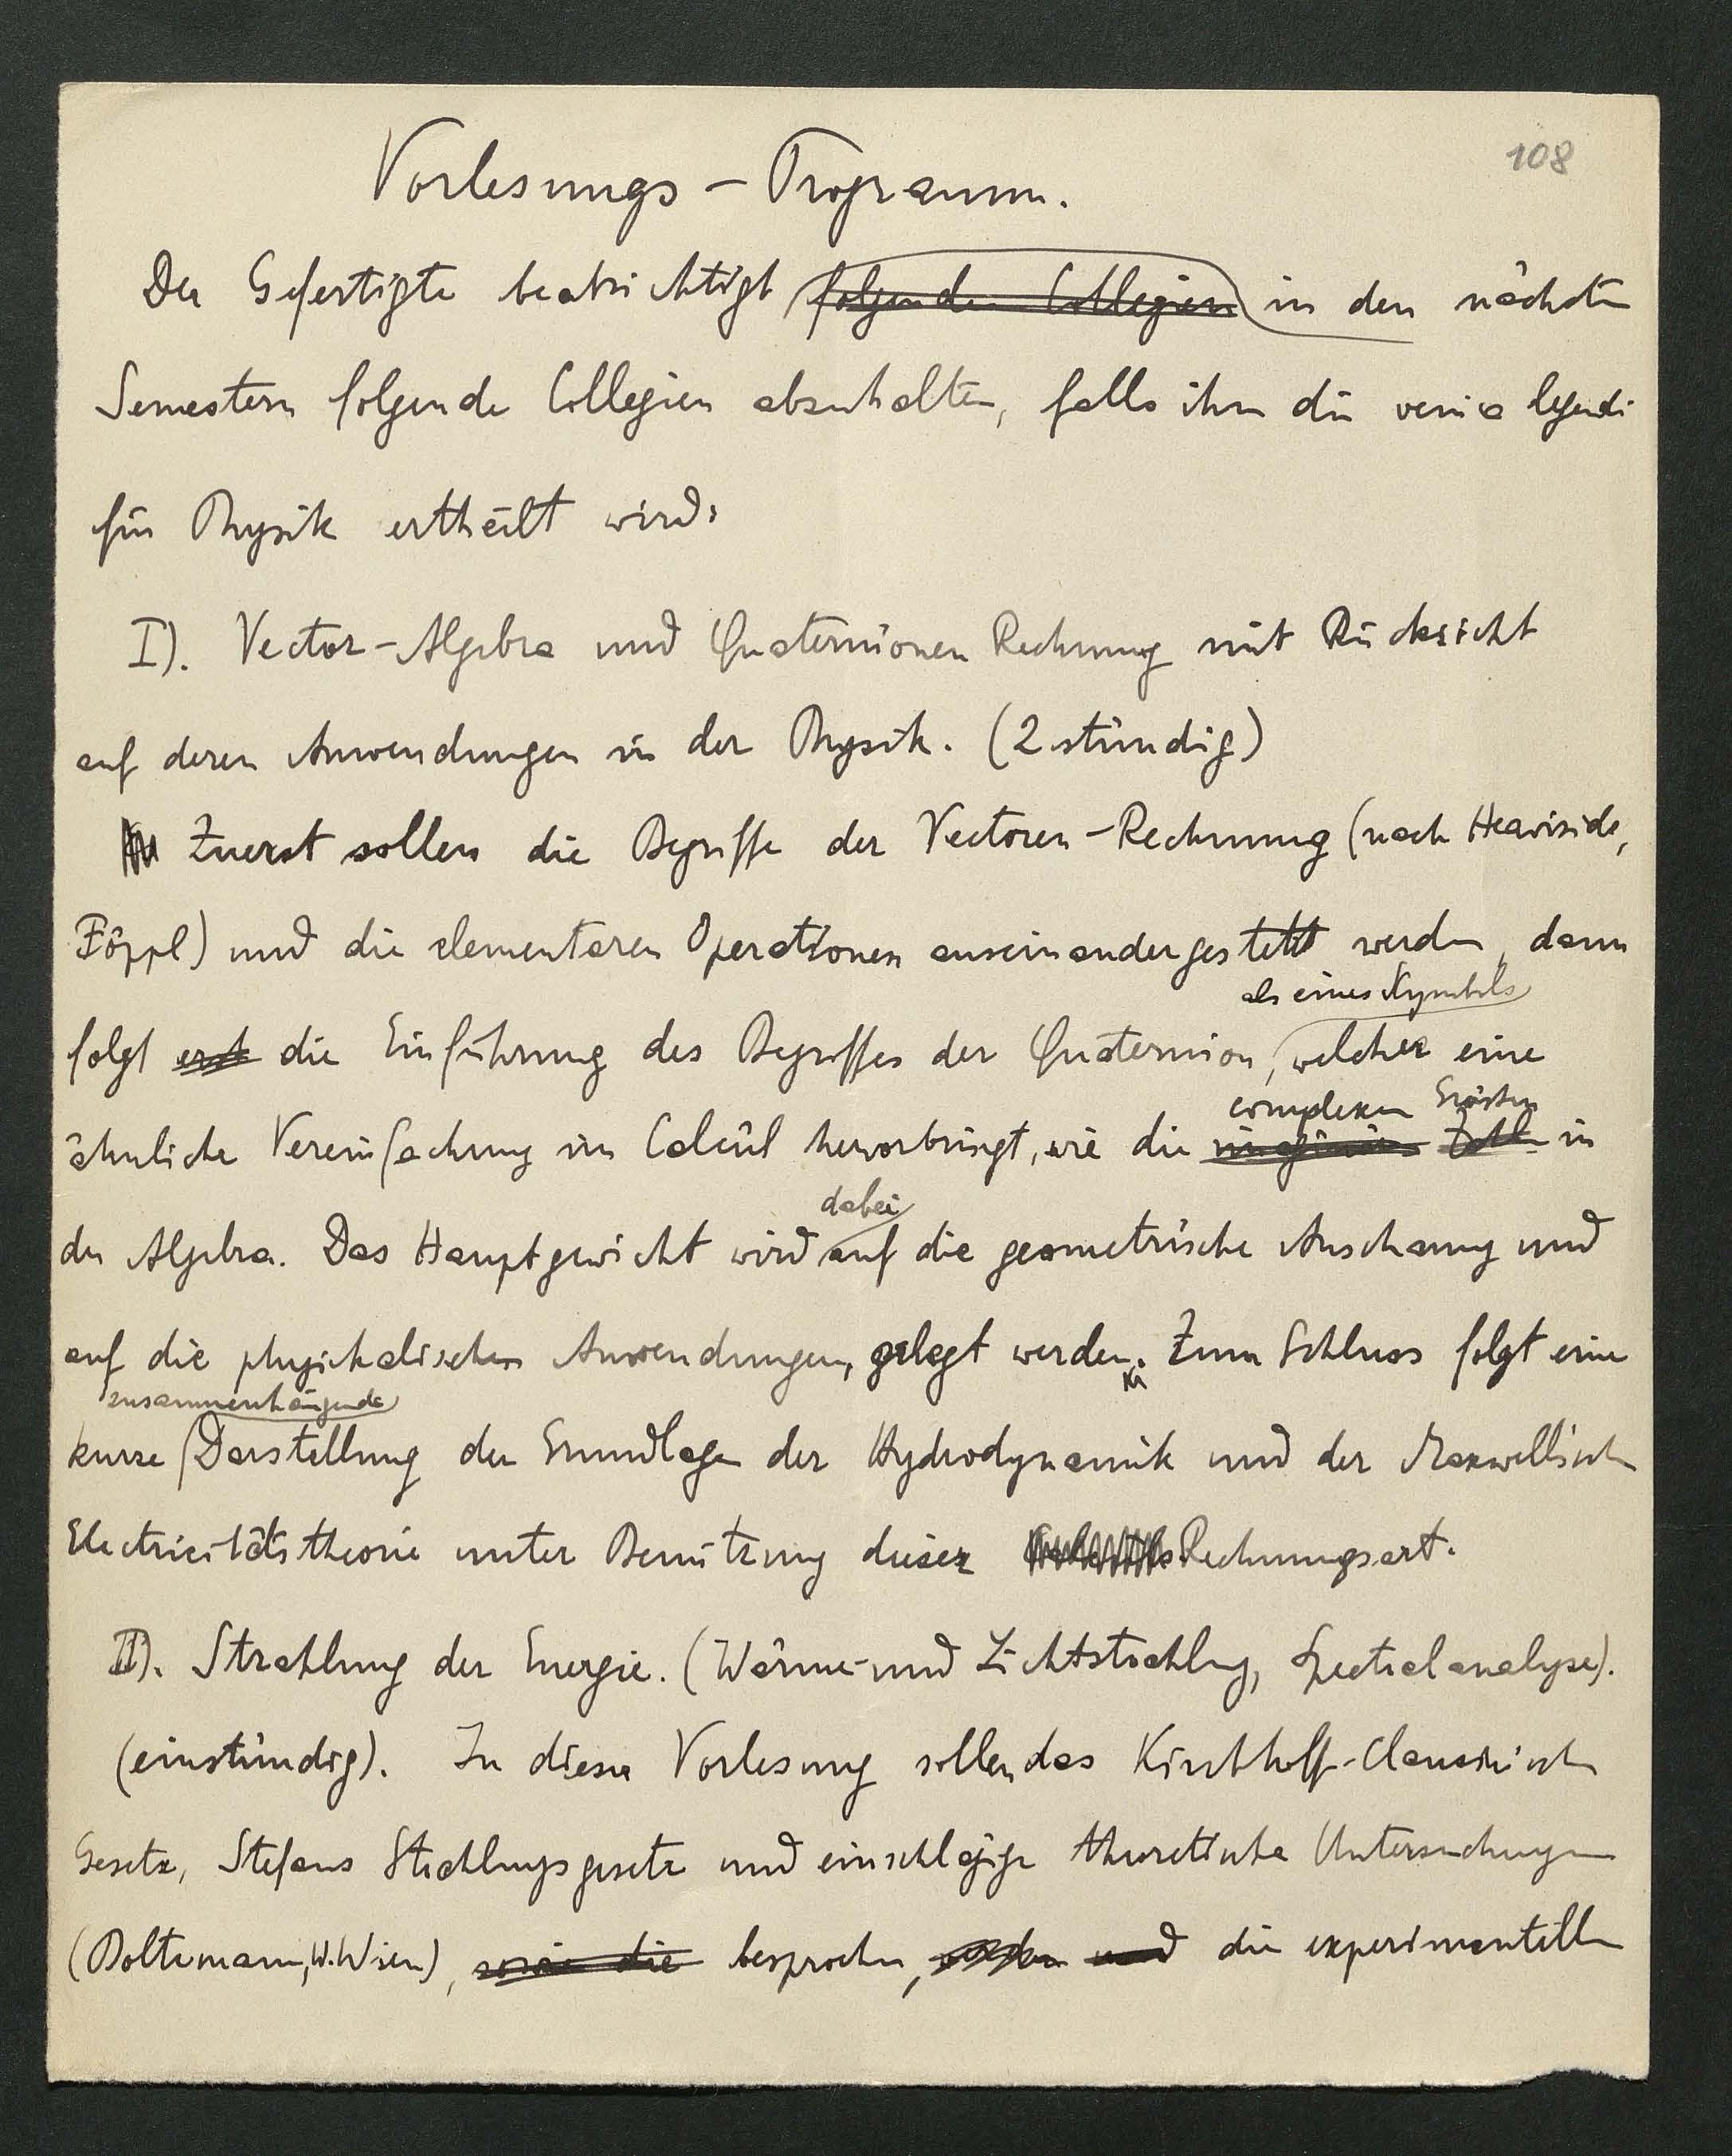 108
Vorlesungs - Programm.
Der Gefertigte beabsichtigt folgende Collegien in den nächsten
Semestern folgende Collegien abzuhalten, falls ihm die venia legendi
für Physik ertheilt wird:
I). Vector-Algebra und Quaternionen Rechnung mit Rücksicht
auf deren Anwendungen in der Physik. (2 stündig)
Zuerst sollen die Begriffe der Vectoren-Rechnung (nach Heaviside,
Föppl) und die elementaren Operationen auseinandergesetzt werden, dann
als eines Symbols
folgt erst die Einführung des Begriffes der Quaternion, welcher eine
complexen Grössen
ähnliche Vereinfachung im Calcül hervorbringt, wie die imaginären Zahlen in
dabei
der Algebra. Das Hauptgewicht wird auf die geometrische Anschauung und
auf die physikalischen Anwendungen, gelegt werden. Zum Schluss folgt eine
zusammenhängende
kurze Darstellung der Grundlagen der Hydrodynamik und der Maxwellischen
Electricitätstheorie unter Benützung dieser Rechnungsart.
II). Strahlung der Energie. (Wärme- und Lichtstrahlung, Spectralanalyse).
(einstündig). In dieser Vorlesung sollen das Kirchhoff-Clausiusische
Gesetz, Stefans Strahlungsgesetz und einschlägige theoretische Untersuchungen
(Boltzmann, W. Wien), sowie die besprochen, werden und die experimentellen